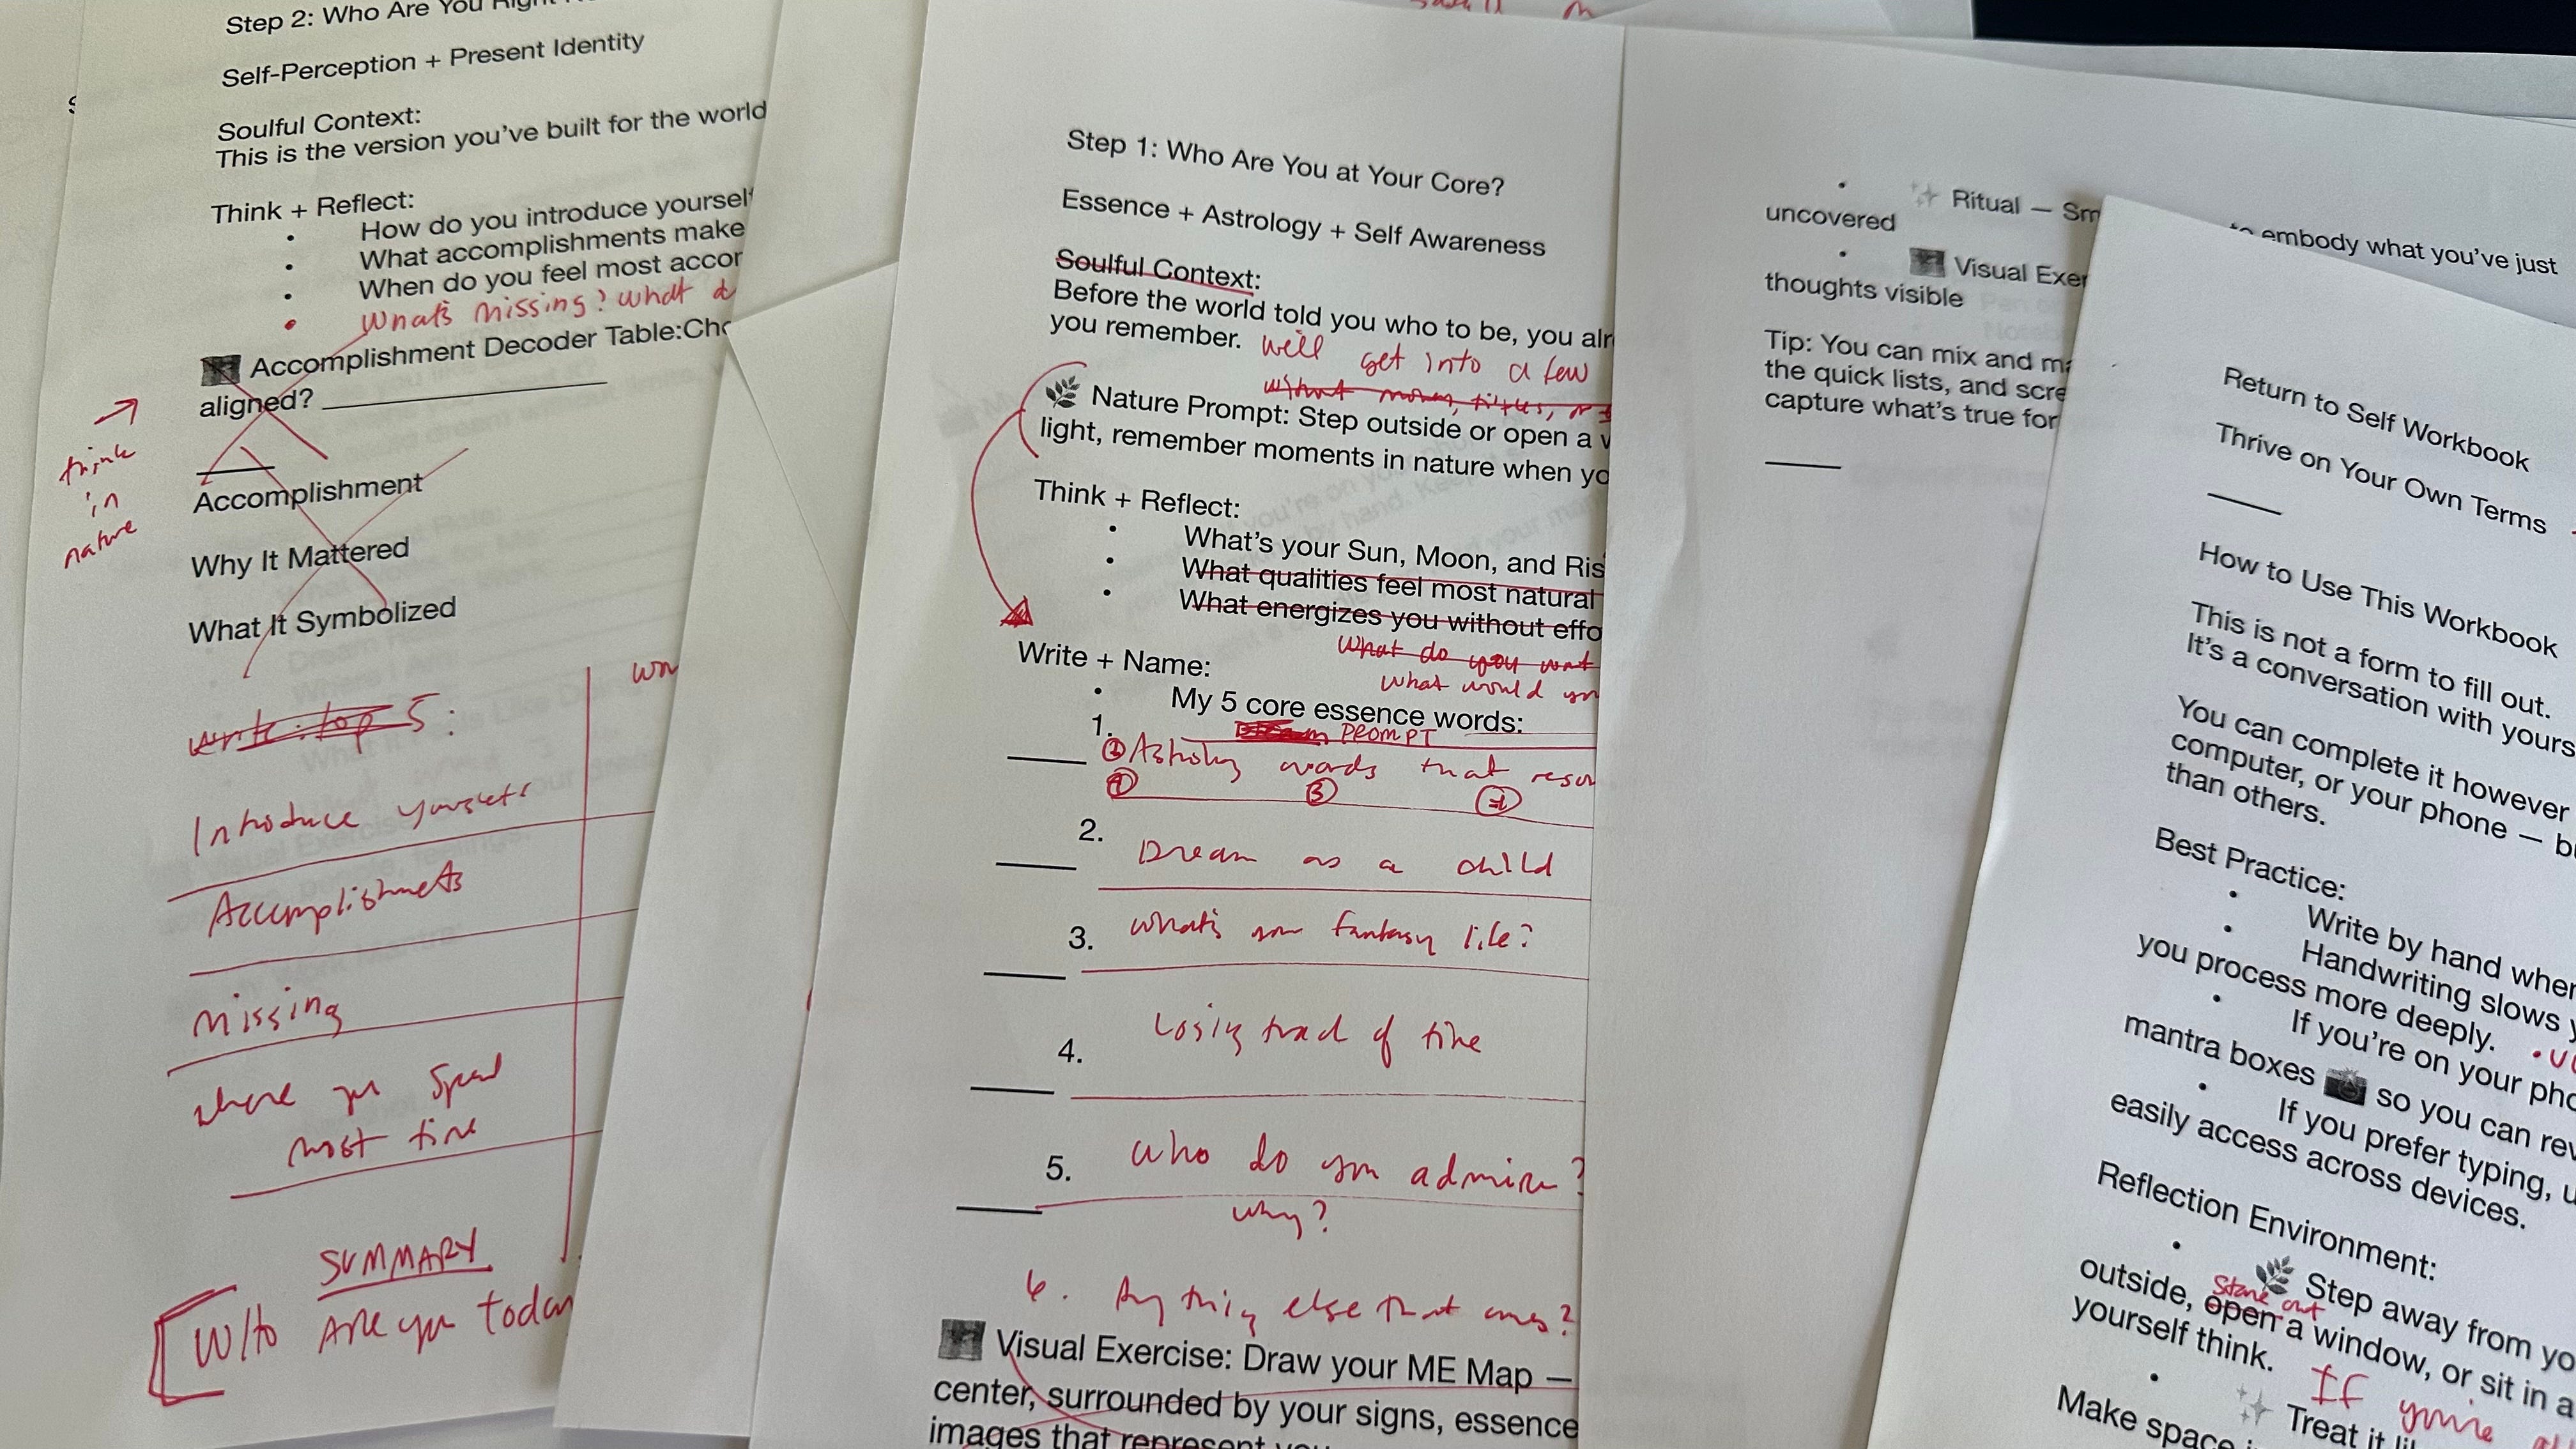 Step 2: Who Are You Right
Self-Perception + Present Identity
Soulful Context:
This is the version you've built for the world
Think + Reflect:
• How do you introduce yourself
• What accomplishments make
• When do you feel most
• What's missing? What
Accomplishment Decoder Table:
aligned?
think
in
nature
Accomplishment
Why It Mattered
What It Symbolized
write top 5:
Introduce yourself
Accomplishments
Missing
where you spend
most time
SUMMARY
Who Are you today
Step 1: Who Are You at Your Core?
Essence + Astrology + Self Awareness
Soulful Context:
Before the world told you who to be, you
you remember. we'll get into a few
without money, titles, or
Nature Prompt: Step outside or open a
light, remember moments in nature when
Think + Reflect:
• What's your Sun, Moon, and
• What qualities feel most natural
• What energizes you without
What do you want
What would
Write + Name:
• My 5 core essence words:
1. PROMPT
words that
2. Dream as a child
3. What's your fantasy life?
4. Losing track of time
5. Who do you admire?
why?
6. Anything else that
Visual Exercise: Draw your ME Map —
center, surrounded by your signs, essence
images that represent
• ✨ Ritual —
uncovered
to embody what you've just
• Visual
thoughts visible
Tip: You can mix and
the quick lists, and
capture what's true for
Return to Self Workbook
Thrive on Your Own Terms
How to Use This Workbook
This is not a form to fill out.
It's a conversation with
You can complete it however
computer, or your phone —
than others.
Best Practice:
• Write by hand
• Handwriting slows
you process more deeply.
• If you're on your
mantra boxes 📷 so you can
• If you prefer typing,
easily access across devices.
Reflection Environment:
• 🌿 Step away from
Stare out
outside, open a window, or sit in a
yourself think. If you're
• ✨ Treat it
Make space